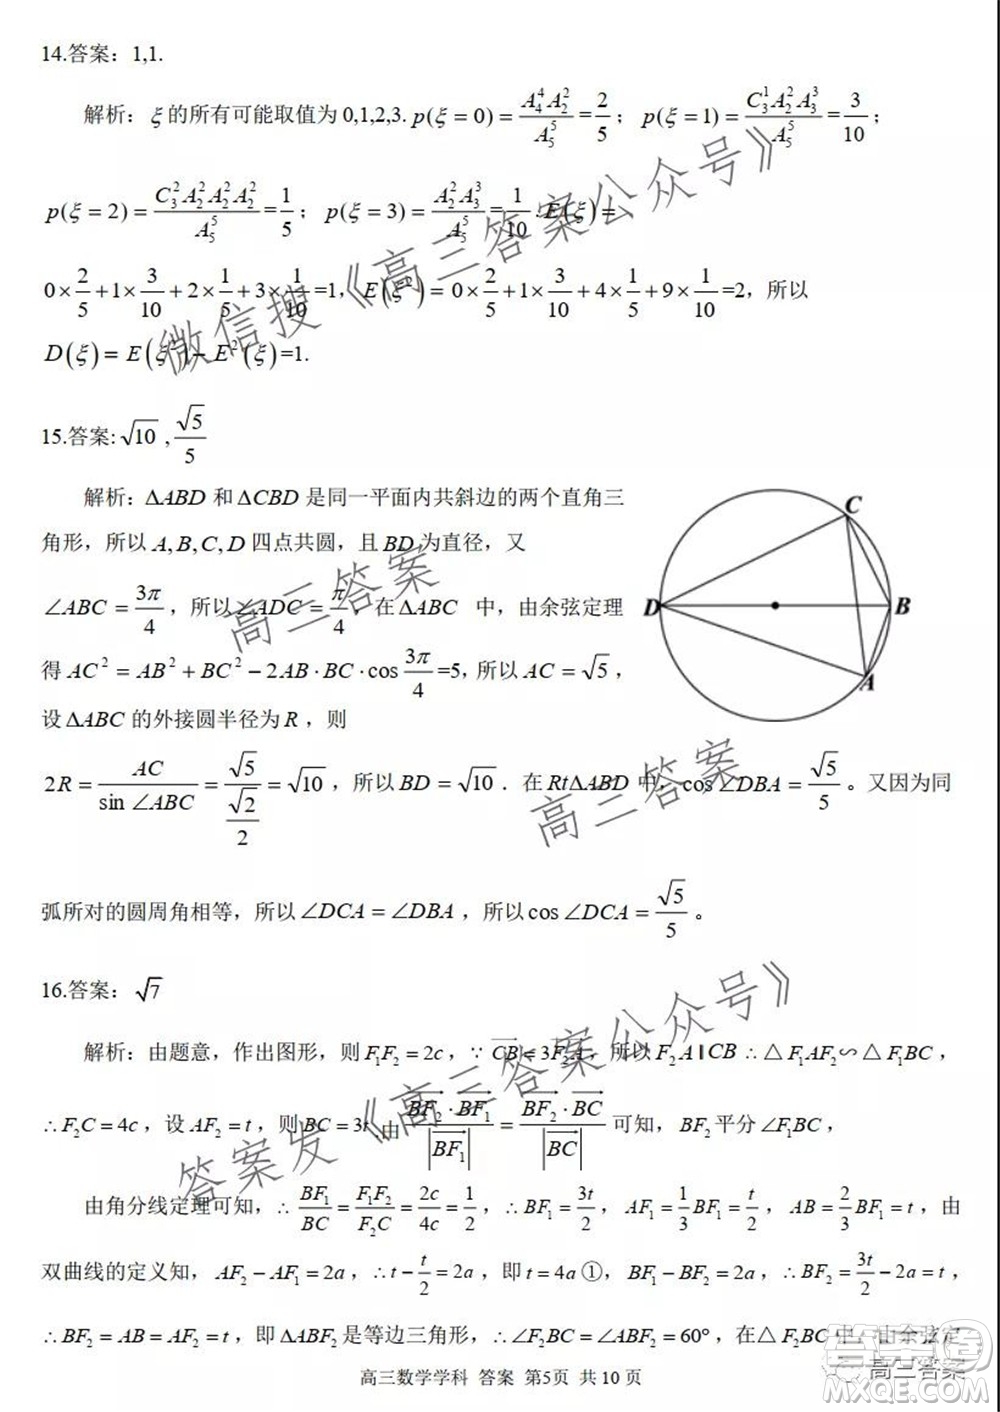 14.答案：1,1.
解析：ξ的所有可能取值为 0,1,2,3. p(ξ=0)=A₄⁴A₂²/A₅⁵=2/5；p(ξ=1)=C₃¹A₂²A₃³/A₅⁵=3/10；
p(ξ=2)=C₃²A₂²A₂²A₂²/A₅⁵=1/5；p(ξ=3)=A₂²A₃³/A₅⁵=1/10. E(ξ)=
0×2/5+1×3/10+2×1/5+3×1/10=1，E(ξ²)=0×2/5+1×3/10+4×1/5+9×1/10=2，所以
D(ξ)=E(ξ²)−E²(ξ)=1.
15.答案:√10 ,√5/5
解析：ΔABD 和 ΔCBD 是同一平面内共斜边的两个直角三
角形，所以 A,B,C,D 四点共圆，且 BD 为直径，又
∠ABC=3π/4，所以∠ADC=π/4，在 ΔABC 中，由余弦定理
得 AC²=AB²+BC²−2AB·BC·cos3π/4=5，所以 AC=√5，
设 ΔABC 的外接圆半径为 R，则
2R=AC/sin∠ABC=√5/(√2/2)=√10，所以 BD=√10．在 RtΔABD 中，cos∠DBA=√5/5。又因为同
弧所对的圆周角相等，所以∠DCA=∠DBA，所以cos∠DCA=√5/5。
C
D
B
A
16.答案：√7
解析：由题意，作出图形，则 F₁F₂=2c，∵CB=3F₂A，所以 F₂A∥CB ∴△F₁AF₂∽△F₁BC，
∴F₂C=4c，设 AF₂=t，则 BC=3t 由 BF₂·BF₁/|BF₁|=BF₂·BC/|BC| 可知，BF₂平分∠F₁BC，
由角分线定理可知，∴BF₁/BC=F₁F₂/F₂C=2c/4c=1/2，∴BF₁=3t/2，AF₁=1/3BF₁=t/2，AB=2/3BF₁=t，由
双曲线的定义知，AF₂−AF₁=2a，∴t−t/2=2a，即 t=4a ①，BF₁−BF₂=2a，∴BF₂=3t/2−2a=t，
∴BF₂=AB=AF₂=t，即 ΔABF₂是等边三角形，∴∠F₂BC=∠ABF₂=60°，在△F₂BC 中，由余弦定
高三数学学科 答案 第5页 共10页
微信搜《高三答案公众号》
高三答案
高三答案
答案发《高三答案公众号》
高三答案
答案圈
MXQE.COM